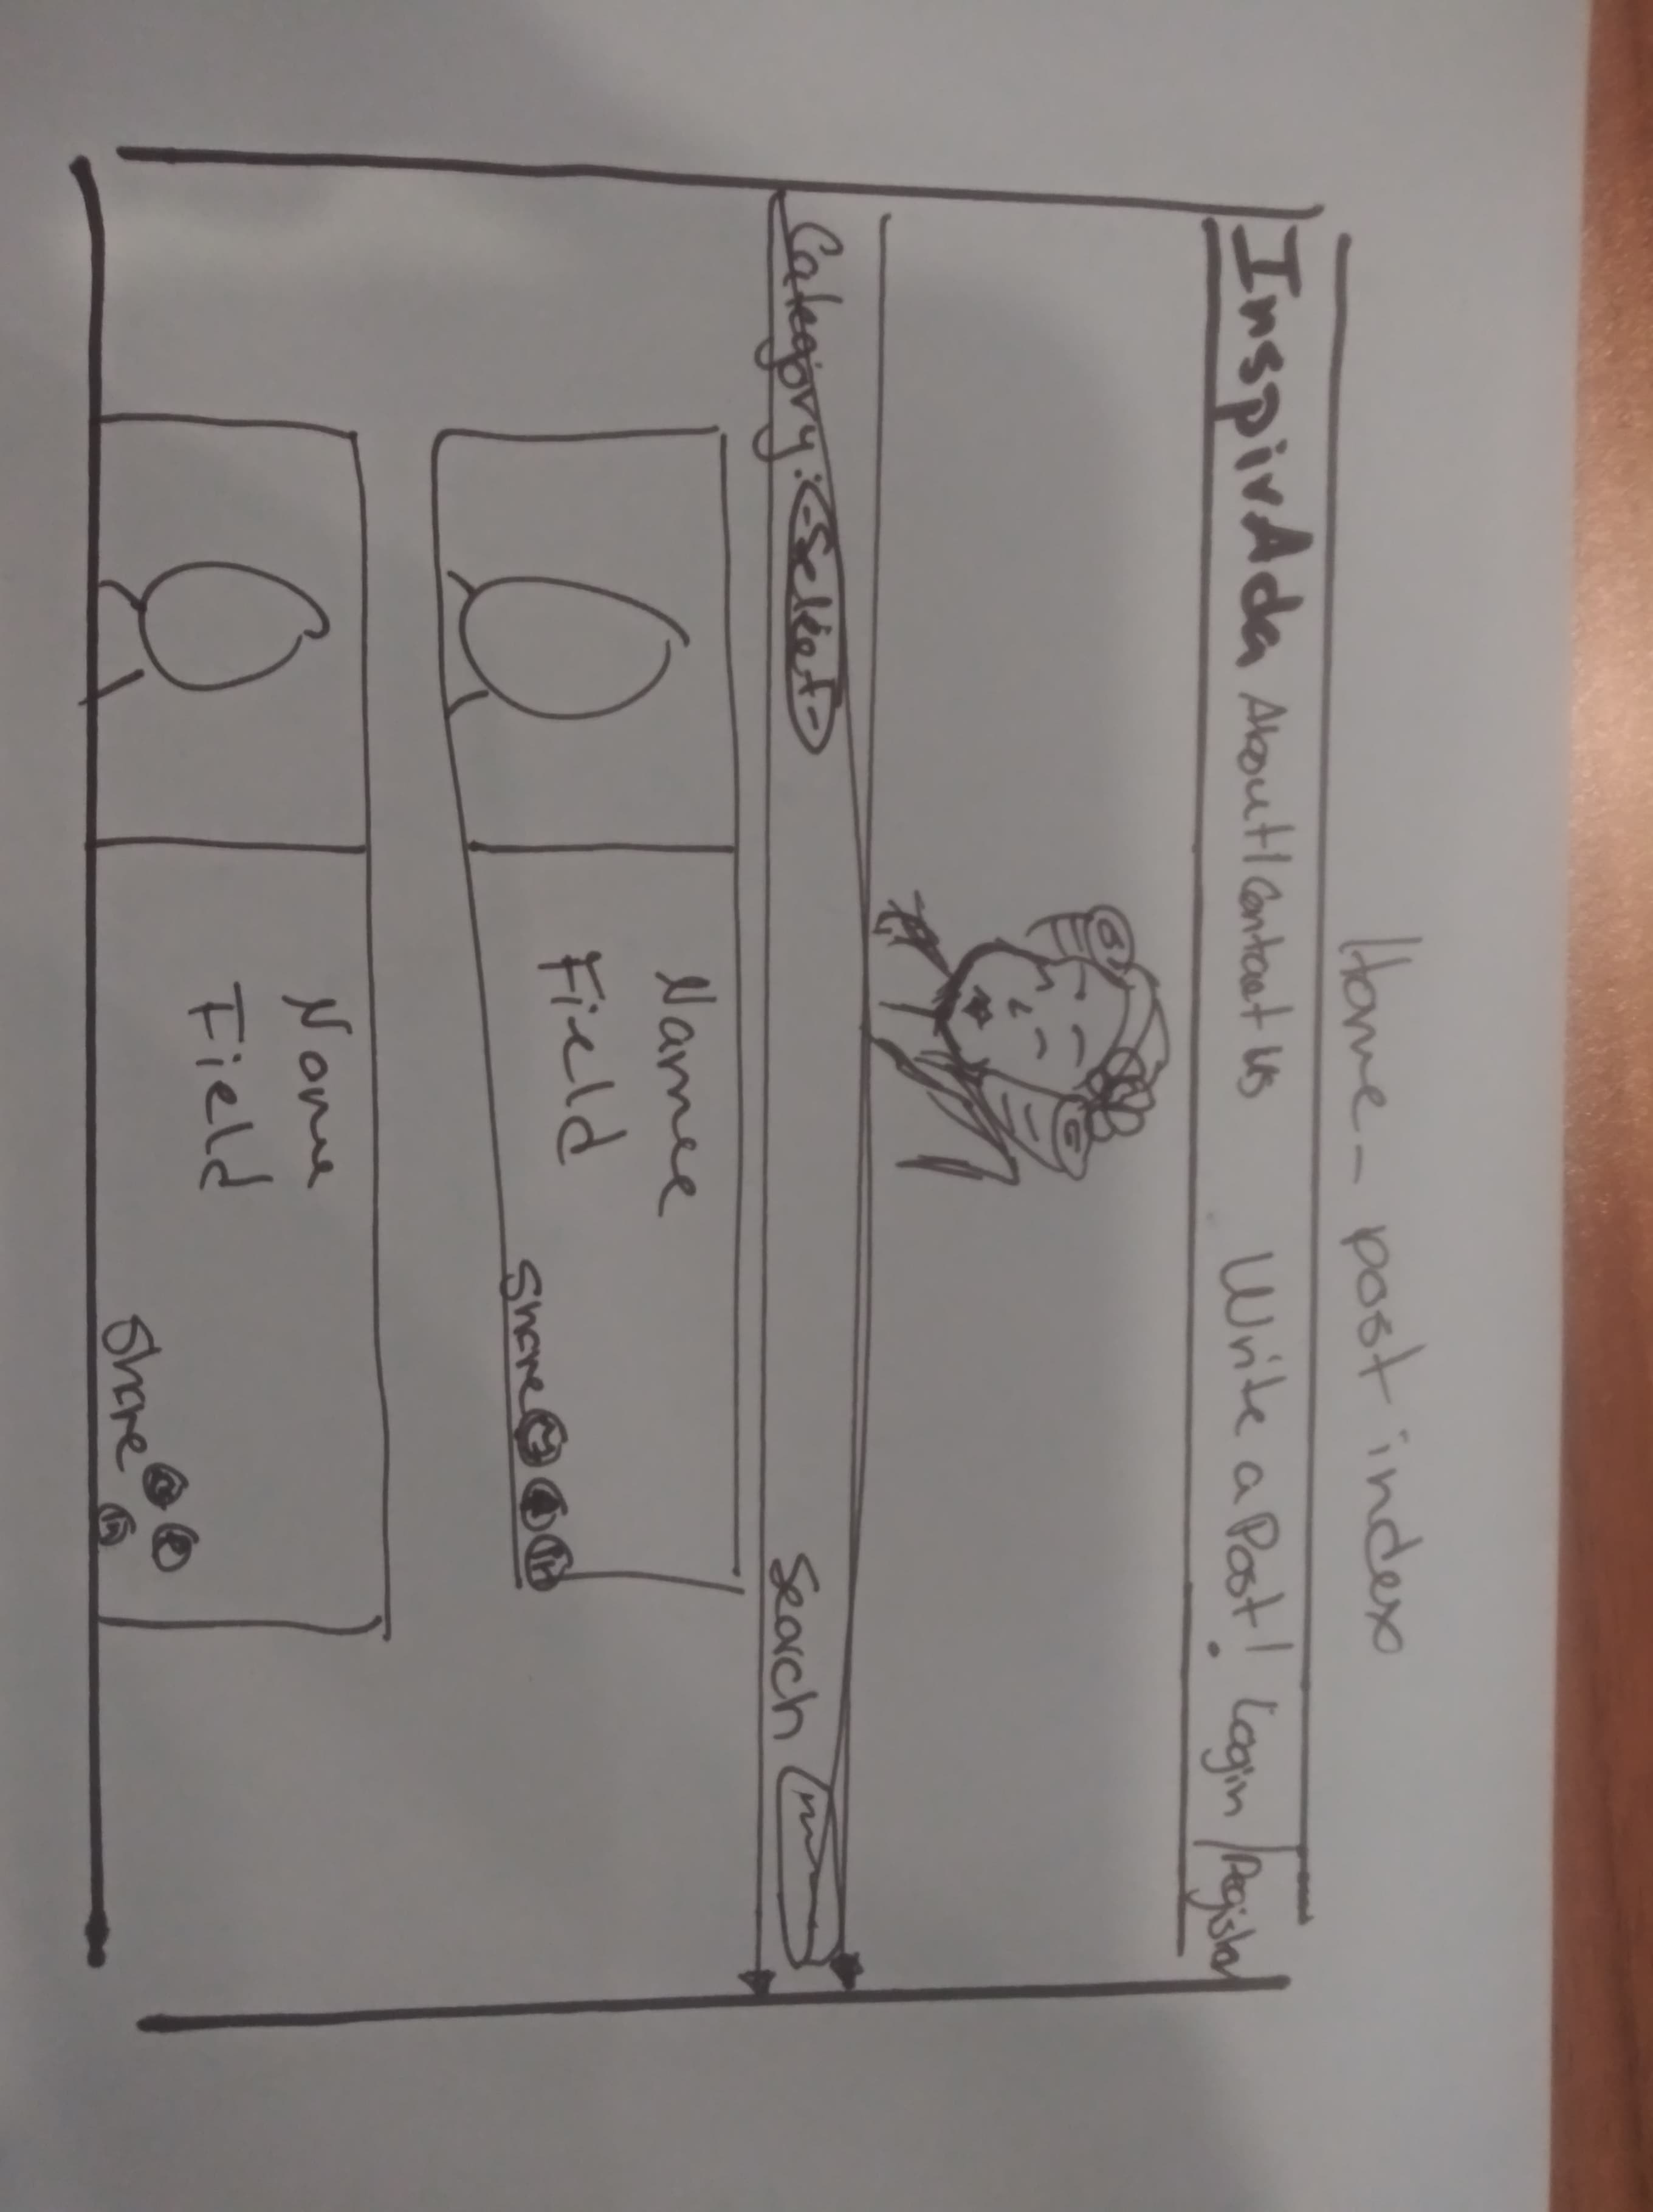 Home - post index
InspirAda About | Contact us Write a Post | Login / Register
Category: -Select- Search
Name
Field
Share in
Name
Field
Share in